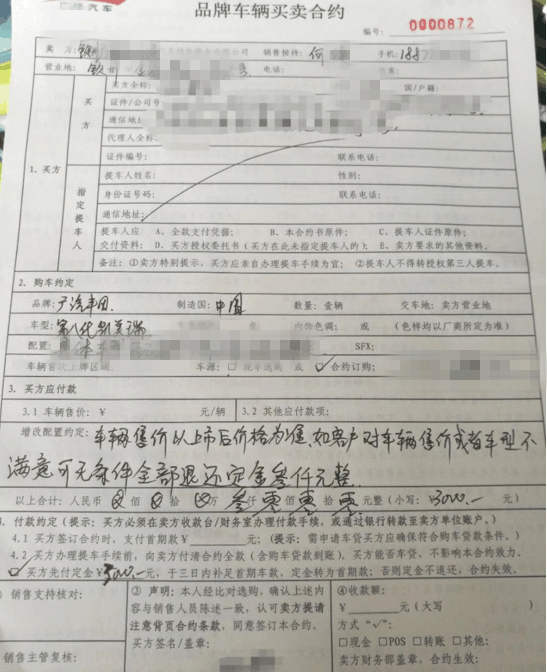 汽车
品牌车辆买卖合约
编号: 0000872
卖 方: 公司 销售接待: 何 手机: 188
营业地: 电话:
买方 卖方全称: 国/户籍:
证件/公司号
通信地址
代理人全称
证件编号: 联系电话:
1. 买方
指定提车人 提车人姓名: 性别:
身份证号码: 联系电话:
通信地址:
提车人应 A、全款支付凭据; B、本合约书原件; C、提车人证件原件;
交付资料: D、买方授权委托书(买方在此未指定提车人的); E、卖方要求的其他资料。
备注: ①卖方特别提示,买方应亲自办理提车手续为宜; ②提车人不得转授权第三人提车。
2. 购车约定
品牌: 广汽丰田 制造国: 中国 数量: 壹辆 交车地: 卖方营业地
车型: 第八代凯美瑞 内饰色调: 或 (色样均以厂商所定为准)
配置: 具体车 SFX:
车辆首次上牌区域: 车源: □ 现车选购 或 ☑ 合约订购:
3. 买方应付款
3.1 车辆售价: ¥ 元/辆 3.2 其他应付款项:
增改配置约定: 车辆售价以上市后价格为准,如客户对车辆售价或者车型不
满意可无条件全部退还定金叁仟元整.
以上合计: 人民币 佰 拾 万 叁仟 零佰 零拾 零元整 (小写: 3000.- 元)
付款约定 (提示: 买方必须在卖方收款台/财务室办理付款手续,或通过银行转款至卖方单位账户。)
4.1 买方签订合约时,支付首期款¥ 元。(提示: 需申请车贷买方应确保符合购车贷款条件。)
4.2 买方办理提车手续前,向卖方付清合约全款(含购车贷款到账)。买方能否车贷,不影响本合约效力。
☑ 买方先付定金¥3000.-元,于三日内补足首期车款,定金转为首期款; 否则定金不退还,合约失效。
① 销售支持核对:
② 声明: 本人经比对选购,确认上述内
容与销售人员陈述一致,认可卖方提请
注意背页合约条款,同意签订本合约。
买方签名/盖章:
④收款额:
¥ 元(大写 )
方式“✓”:
□现金 □POS □转账 □其他:
卖方财务部盖章,合约生效:
销售主管复核: